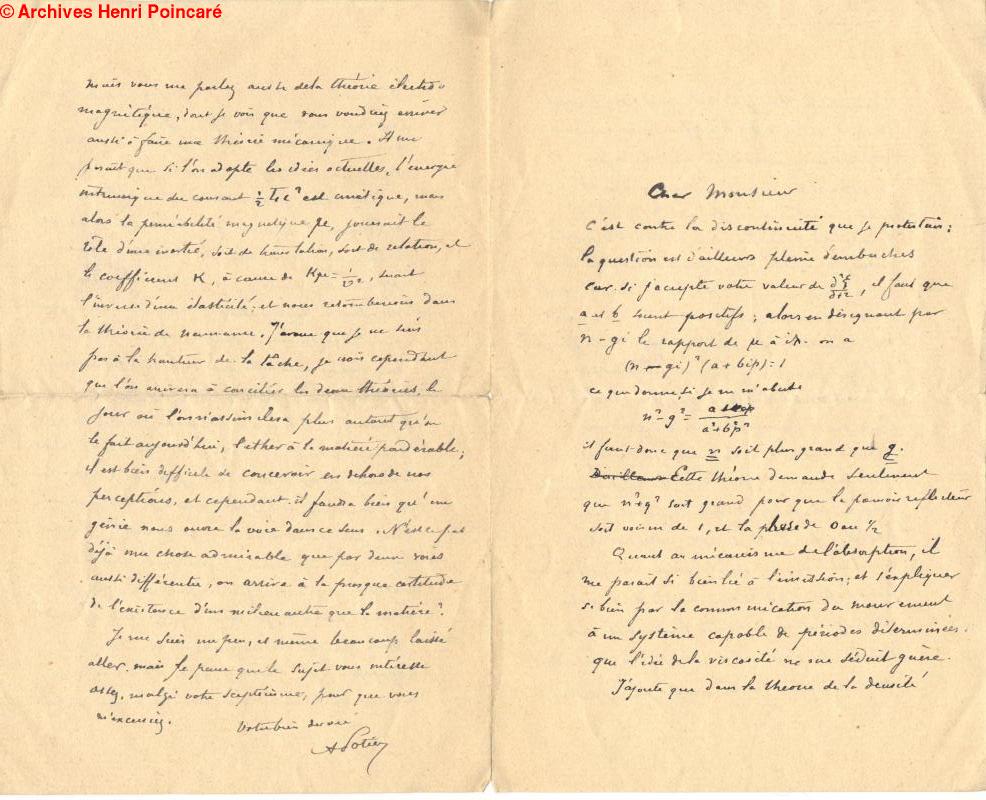 © Archives Henri Poincaré
Cher Monsieur
C'est contre la discontinuité que je protestais;
la question est d'ailleurs pleine d'embuches
car si j'accepte votre valeur de d²ξ/dt², il faut que
a et b soient positifs; alors en désignant par
n - gi le rapport de μ à iλ on a
(n - gi)² (a + bip) = 1
ce qui donne, si je ne m'abuse
n² - g² = a / a² + b²p²
il faut donc que n soit plus grand que g.
Cette théorie demande seulement
que n² + g² soit grand pour que le pouvoir réflecteur
soit voisin de 1, et la phase de 0 ou ½
Quant au mécanisme de l'absorption, il
me parait si bien lié à l'émission; et s'expliquer
si bien par la communication du mouvement
à un système capable de périodes déterminées.
que l'idée de la viscosité ne me séduit guère.
J'ajoute que dans la théorie de la densité
mais vous me parlez aussi de la théorie électro
magnétique, dont je vois que vous voudriez arriver
aussi à faire une théorie mécanique. Il me
parait que si l'on adopte les idées actuelles, l'énergie
intrinsèque du courant ½ Li² est cinétique, mais
alors la perméabilité magnétique μ, jouerait le
rôle d'une inertie, soit de translation, soit de rotation, et
le coefficient K, à cause de Kμ = 1/v², serait
l'inverse d'une élasticité; et nous retomberions dans
la théorie de Neumann. J'avoue que je ne suis
pas à la hauteur de la tâche, je crois cependant
que l'on arrivera à concilier les deux théories, le
jour où l'on n'assimilera plus autant qu'on
le fait aujourd'hui, l'ether à la matière pondérable;
il est bien difficile de concevoir en dehors de nos
perceptions, et cependant il faudra bien qu'un
génie nous ouvre la voie dans ce sens. N'est ce pas
déjà une chose admirable que par deux voies
aussi différentes, on arrive à la presque certitude
de l'existence d'un milieu autre que la matière?
Je me suis un peu, et même beaucoup laissé
aller, mais je pense que le sujet vous intéresse
assez, malgré votre scepticisme, pour que vous
m'excusiez.
Votre bien dévoué
A Potier